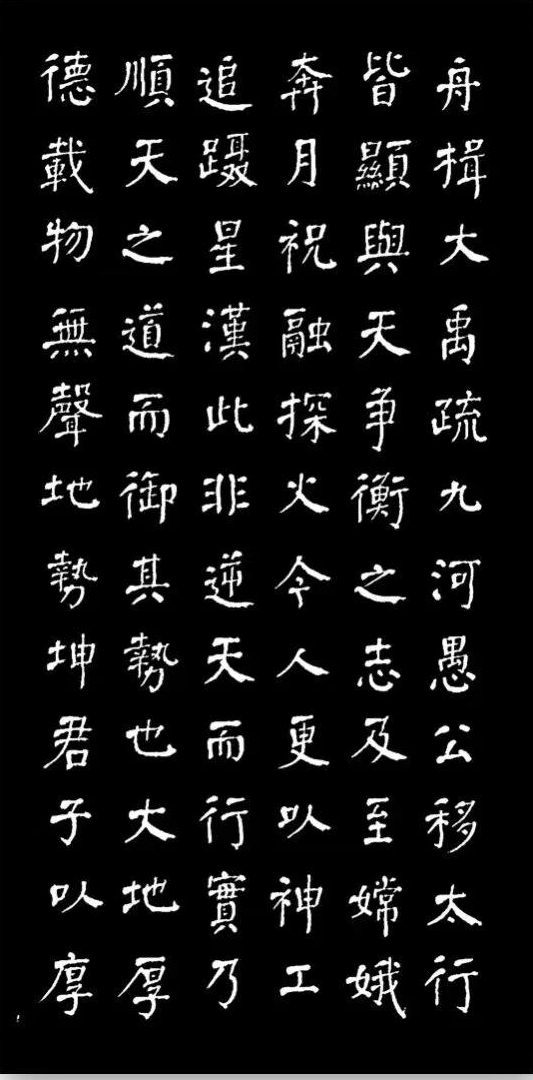 舟楫大禹疏九河愚公移太行
皆顯與天争衡之志及至嫦娥
奔月祝融探火今人更以神工
追躡星漢此非逆天而行實乃
順天之道而御其勢也大地厚
德載物無聲地勢坤君子以厚